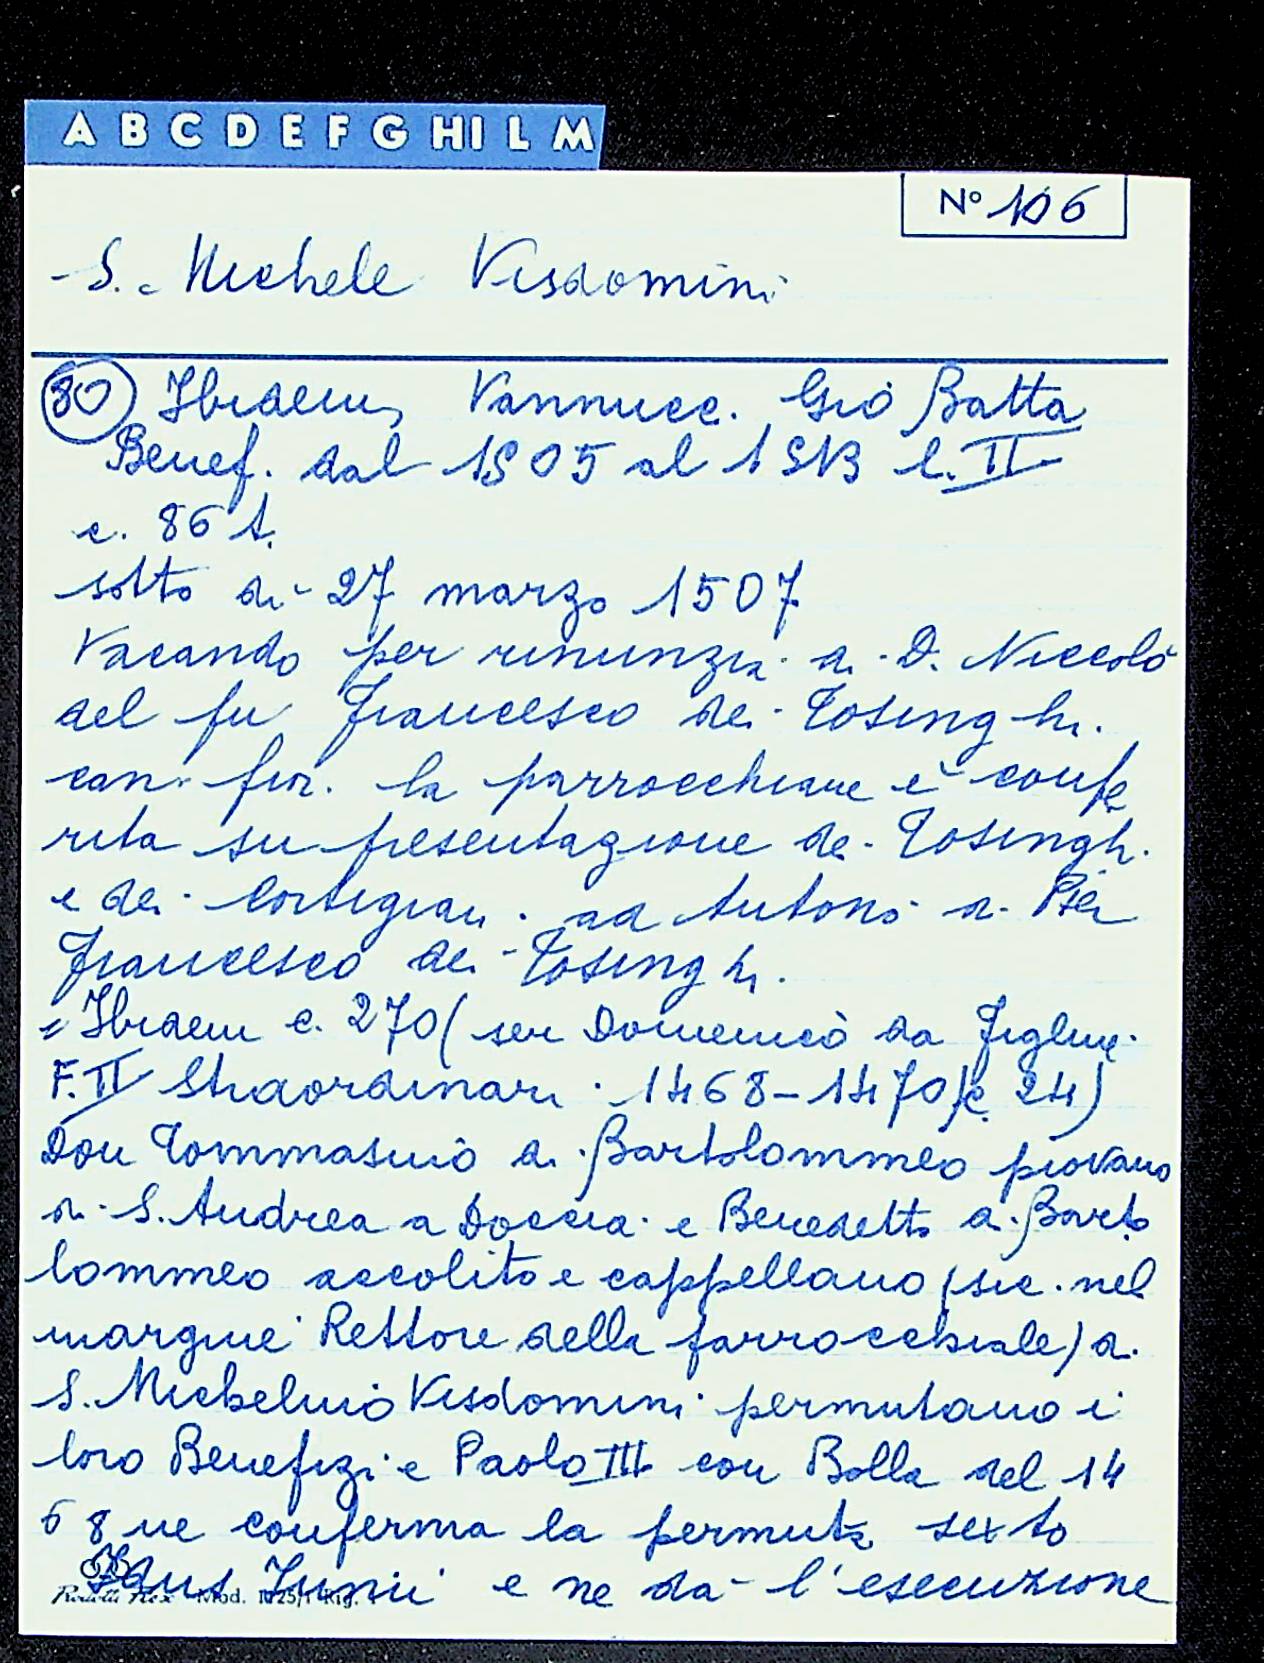 A B C D E F G HI L M
N° 106
S. Michele Visdomini
80 Ibidem, Vannucc. Gio Batta
Benef. dal 1505 al 1513 l. II
c. 86 t.
sotto di 27 marzo 1507
Vacando per rinunzia di D. Niccolò
del fu Francesco dei Tosinghi
can. fior. la parrocchiale è confe
rita su presentazione dei Tosinghi
e dei Cortigiani ad Antonio di Pier
Francesco dei Tosinghi.
= Ibidem c. 270 (ser Domenico da Figline
F. II Straordinari 1468-1470 c. 24)
Don Tommasino di Bartolommeo piovano
di S. Andrea a Doccia e Benedetto di Barto
lommeo accolito e cappellano (sic. nel
margine Rettore della parrocchiale) di
S. Michelino Visdomini permutano i
loro Benefizi e Paolo III con Bolla del 14
68 ne conferma la permuta sexto
Idus Junii e ne da l'esecuzione
Mod.